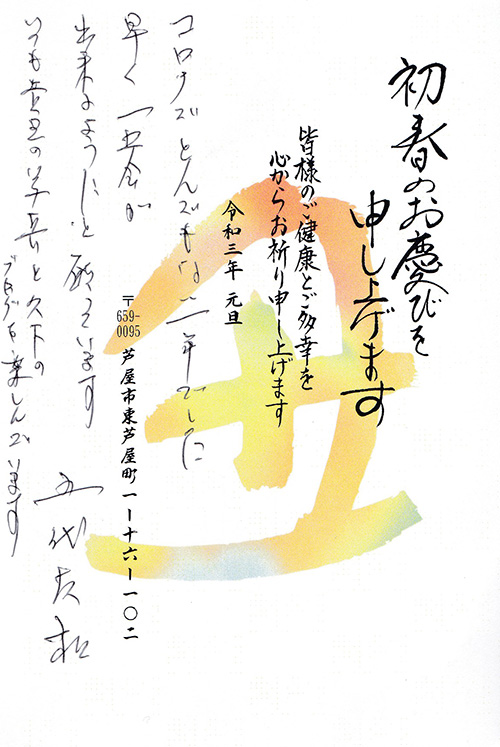 初春のお慶びを
申し上げます
皆様のご健康とご多幸を
心からお祈り申し上げます
令和三年 元旦
〒659-0095
芦屋市東芦屋町一ー十六ー一〇二
丑
コロナでとんでもない一年でした
早く 一五会が
出来るようにと 願っています
いつも 貴兄の
ブログを楽しんでいます
五代友和